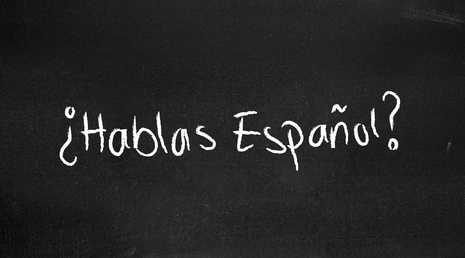 ¿Hablas Español?